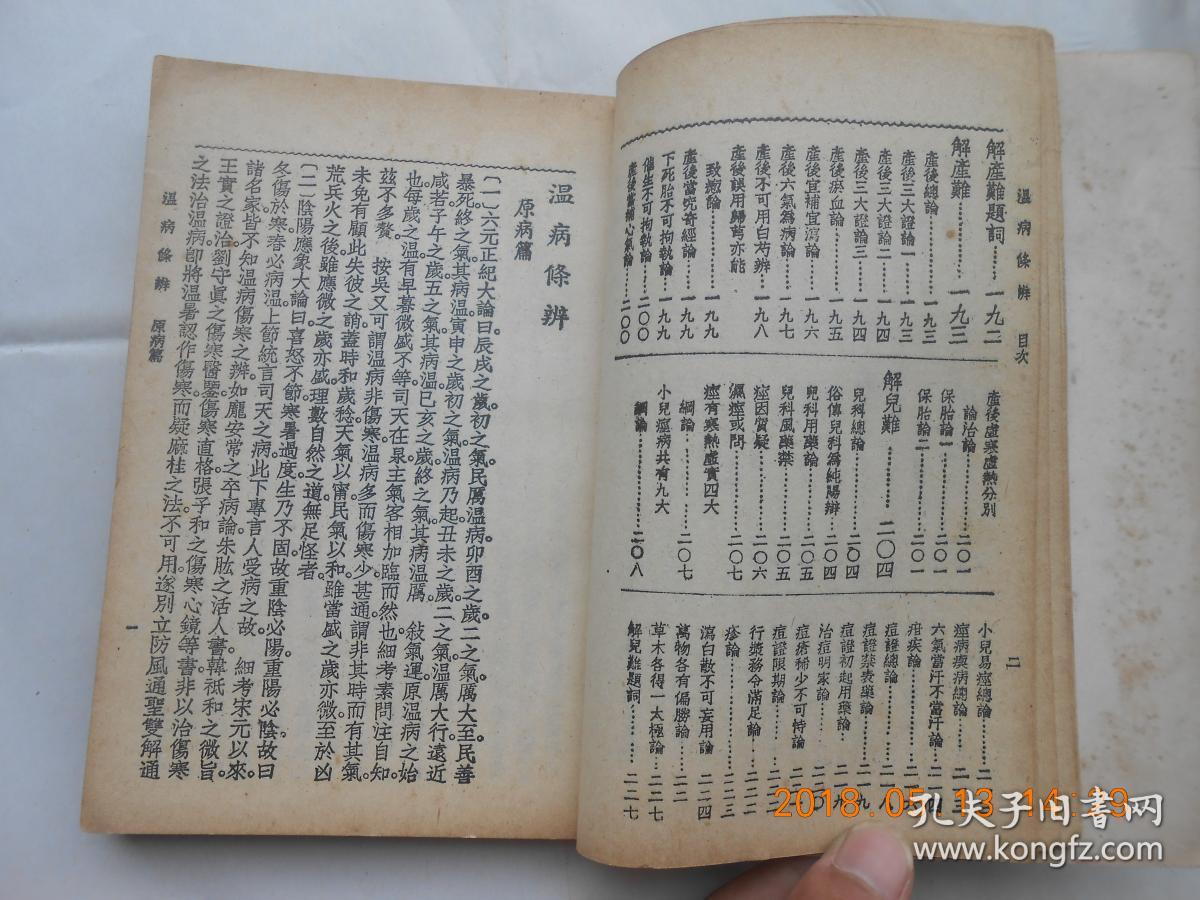 溫病條辨 目次
二
解產難題詞⋯⋯一九二
解產難⋯⋯一九三
產後總論⋯⋯一九三
產後三大證論一⋯⋯一九三
產後三大證論二⋯⋯一九四
產後三大證論三⋯⋯一九四
產後瘀血論⋯⋯一九五
產後宜補宜瀉論⋯⋯一九六
產後六氣為病論⋯⋯一九七
產後不可用白芍辨⋯⋯一九八
產後誤用歸芎亦能
致瘛論⋯⋯一九九
產後當究奇經論⋯⋯一九九
下死胎不可拘執論⋯⋯一九九
催生不可拘執論⋯⋯二〇〇
產後當補心氣論⋯⋯二〇〇
產後虛寒虛熱分別
論治論⋯⋯二〇一
保胎論一⋯⋯二〇一
保胎論二⋯⋯二〇一
解兒難⋯⋯二〇四
兒科總論⋯⋯二〇四
俗傳兒科為純陽辯⋯⋯二〇四
兒科用藥論⋯⋯二〇五
兒科風藥禁⋯⋯二〇五
痙因質疑⋯⋯二〇六
濕痙或問⋯⋯二〇七
痙有寒熱虛實四大
綱論⋯⋯二〇七
小兒痙病共有九大
綱論⋯⋯二〇八
小兒易痙總論
痙病瘛病總論
六氣當汗不當汗論
疳疾論
痘證總論
痘證禁表藥論
痘證初起用藥論
治痘明家論
痘瘡稀少不可恃論
痘證限期論
行漿務令滿足論
疹論⋯⋯二二三
瀉白散不可妄用論 二二四
萬物各有偏勝論
草木各得一太極論 二二七
解兒難題詞⋯⋯二二七
溫病條辨
原病篇
〔一〕六元正紀大論曰辰戌之歲初之氣民厲溫病卯酉之歲二之氣厲大至民善
暴死終之氣其病溫寅申之歲初之氣溫病乃起丑未之歲二之氣溫厲大行遠近
咸若子午之歲五之氣其病溫巳亥之歲終之氣其病溫厲。 敍氣運原溫病之始
也每歲之溫有早暮微盛不等司天在泉主氣客相加臨而然也細考素問注自知
茲不多贅。 按吳又可謂溫病非傷寒溫病多而傷寒少甚通謂非其時而有其氣
未免有顧此失彼之誚蓋時和歲稔天氣以甯民氣以和雖當盛之歲亦微至於凶
荒兵火之後雖應微之歲亦盛理數自然之道無足怪者。
〔二〕陰陽應象大論曰喜怒不節寒暑過度生乃不固故重陰必陽重陽必陰故曰
冬傷於寒春必病溫上節統言司天之病此下專言人受病之故。 細考宋元以來。
諸名家皆不知溫病傷寒之辨如龐安常之卒病論朱肱之活人書韓祗和之微旨。
王實之證治劉守真之傷寒醫鑒傷寒直格張子和之傷寒心鏡等書非以治傷寒
之法治溫病卽將溫暑認作傷寒而疑麻桂之法不可用遂別立防風通聖雙解通
溫病條辨 原病篇
一
2018.05.13 14:29
孔夫子旧書网
www.kongfz.com